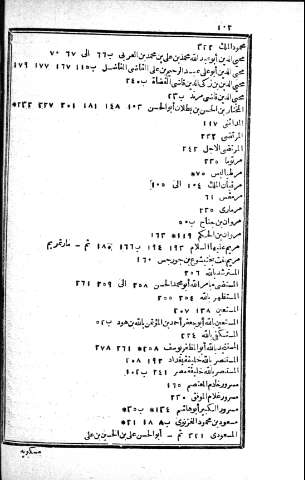 ١٠٣
محمود الملك ٣٢٤
محيي الدين ابو عبد الله محمد بن علي بن محمد بن العربي ب٦٦ الى ٧٠ ٦٧
محيي الدين ابو علي عبد الرحيم بن علي القاضي الفاضل ب١١٥ ١٦٧ ١٧٧ ١٧٩
محيي الدين بن زكي الدين قاضي القضاة ب٢٤٠
محيي الدين قاضي مرند ب٢٣
المختار بن الحسن بن بطلان أبو الحسن ١٠٣ ١٤٨ ١٨١ ٢٠١ ٢٢٧ ٢٣٣*
المدائني ١١٧
المرتضى ٢٣٢
المرتضى الاجل ٢٤٢
مرتوما ٢٣٥
مرطبالبس ٧٥*
مرقيان الملك ١٠٤ الى ١٠٥
مرقس ٦١
مرماري ٢٣٥
مروان بن جناح ب٥٠
مروان بن الحكم ١١٩* ١٦٣
مريم عليها السلام ١٩٣ ١٩٤ ب١٦٦ ١٨٥ ثم - مارتمريم
مريم بنت بختيشوع بن جورجس ١٦٠
المسترشد بالله ٣٠٦
المستضيء بامر الله أبو محمد الحسن ٢٥٨ الى ٢٥٩ ٢٦١
المستظهر بالله ٢٥٤ ٢٥٥
المستعين ١٣٨ ٢٠٧
المستعين بالله أبو جعفر أحمد بن المؤتمن بالله بن هود ب٥٢
المستكفي بالله ٢٢٤
المستنجد بالله أبو المظفر يوسف ٢٥٨* ٢٦١ ٢٧٨
المستنصر بالله خليفة بغداد ١٩٣ ٢٠٨
المستنصر بالله خليفة مصر ٢٤١ ب١٠٢
مسرور خادم المعتصم ١٦٥
مسرور غلام الموفق ٢٣٠
مسرور الكبير أبو هاشم ١٣٤* ب٣٥*
مسعود بن محمود الغزنوي ب٨ ١٨ ٢١*
المسعودي ٢٢١ ثم - أبو الحسن علي بن الحسين بن علي
مسكويه